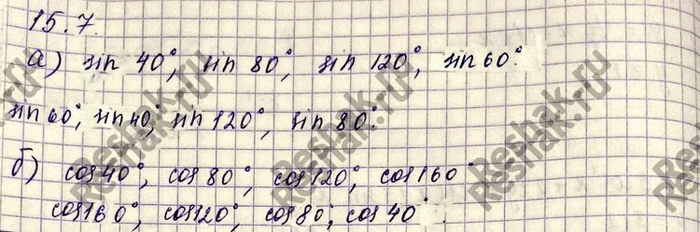 15.7.
а) sin 40°, sin 80°, sin 120°, sin 60°.
sin 60°, sin 40°, sin 120°, sin 80°.
б) cos 40°, cos 80°, cos 120°, cos 160°
cos 160°, cos 120°, cos 80°, cos 40°.
Reshak.ru
Reshak.ru
Reshak.ru